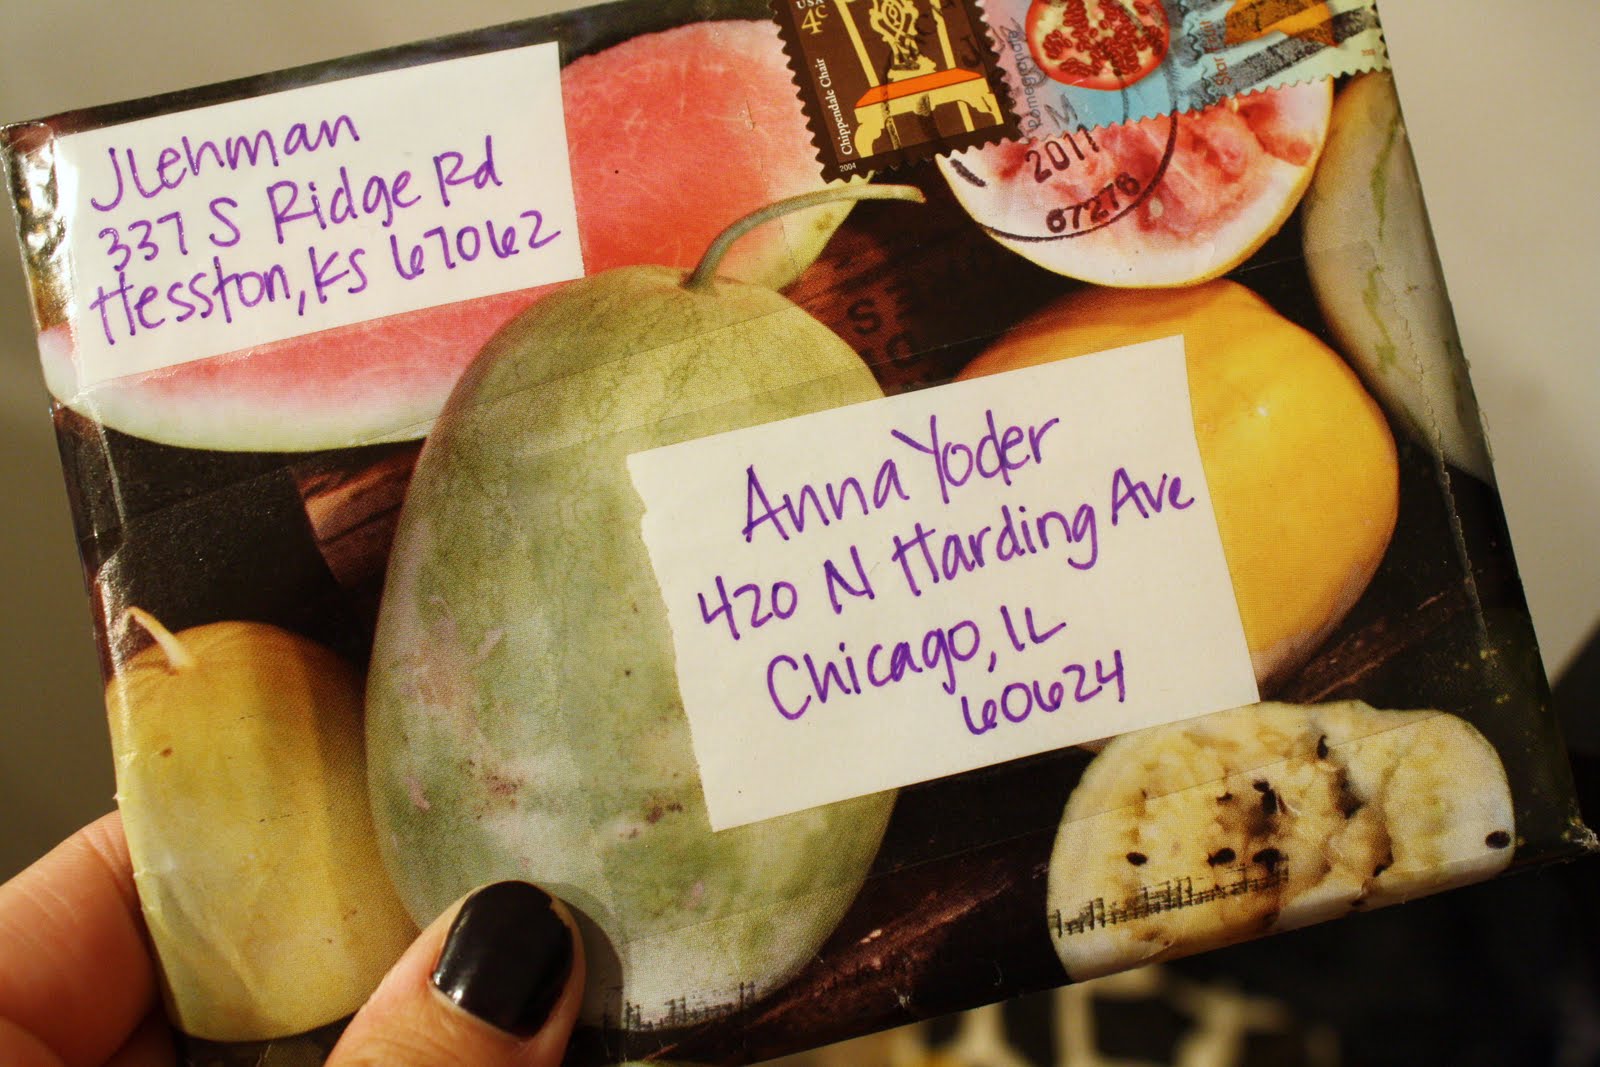 JLehman
337 S Ridge Rd
Hesston, KS 67062
USA
4c
Chippendale Chair
2004
Pomegranate
Star Fruit
2011
67276
Anna Yoder
420 N Harding Ave
Chicago, IL
60624